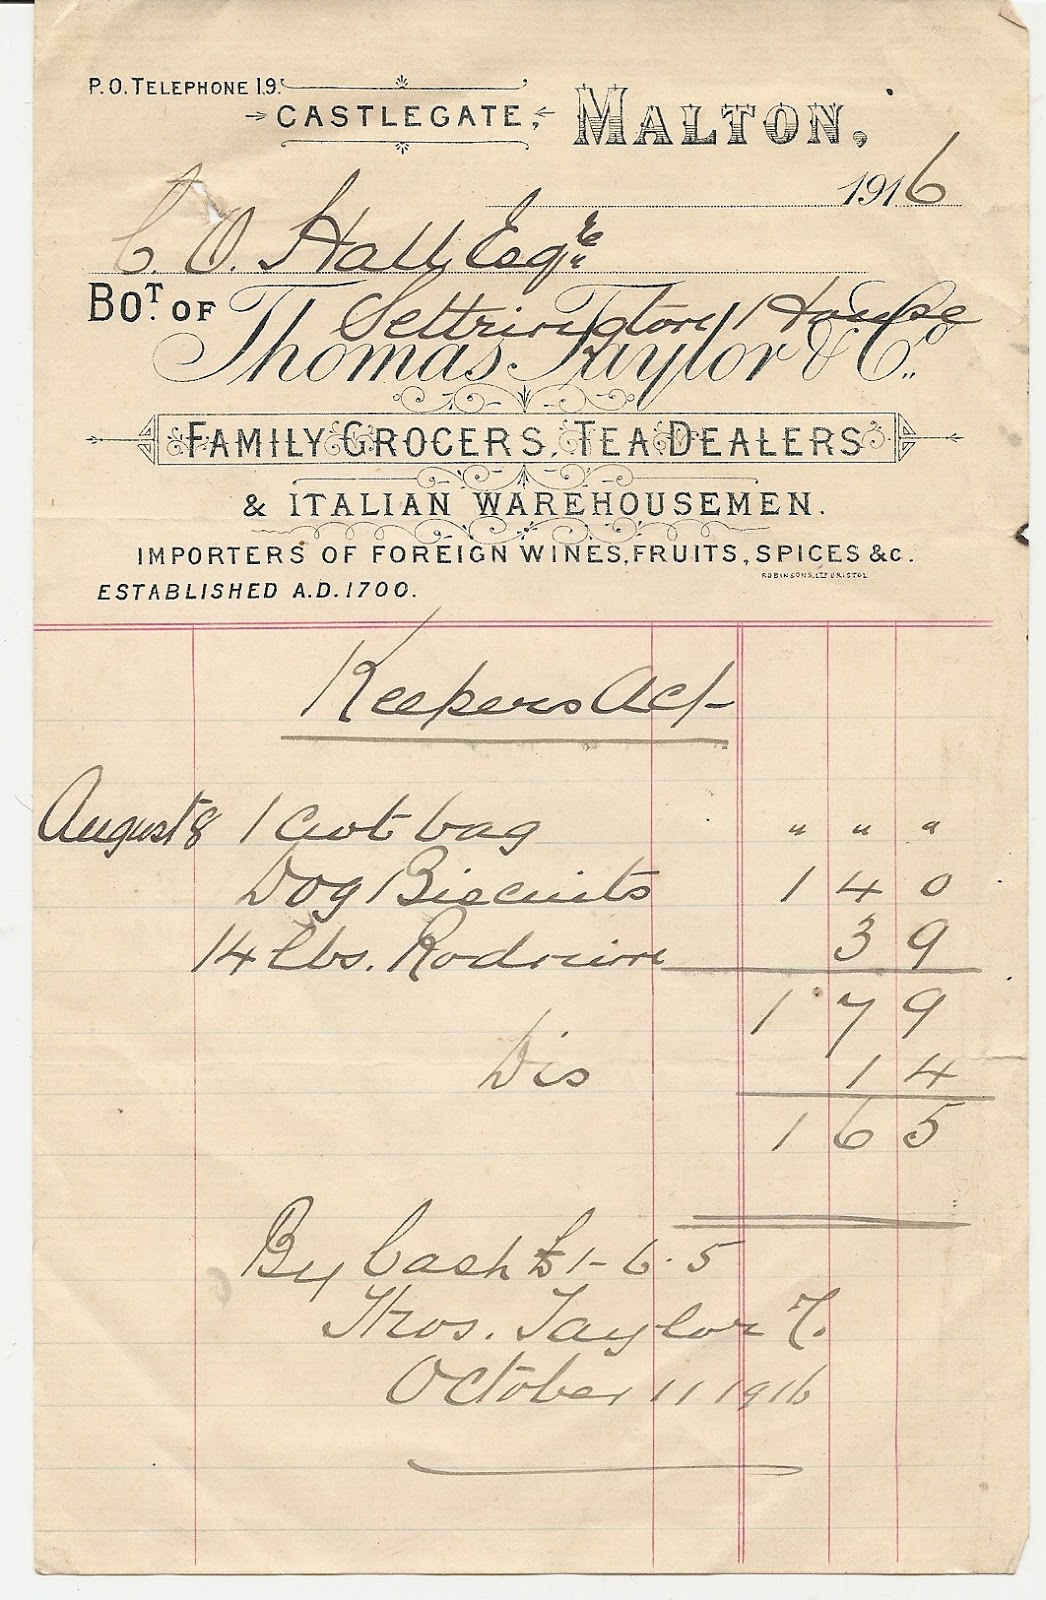 P.O. TELEPHONE 19.
CASTLEGATE, MALTON,
1916
C. O. Hall Esqre
BOT. OF Settrington House
Thomas Taylor & Co.
FAMILY GROCERS, TEA DEALERS
& ITALIAN WAREHOUSEMEN.
IMPORTERS OF FOREIGN WINES, FRUITS, SPICES &c.
ROBINSONS, LTD BRISTOL
ESTABLISHED A.D. 1700.
Keepers Act
August 8 1 Cwt bag " " "
Dog Biscuits 1 4 0
14 lbs. Rodnim 3 9
1 7 9
Dis 1 4
1 6 5
By Cash £1-6-5
Thos. Taylor
October 11 1916